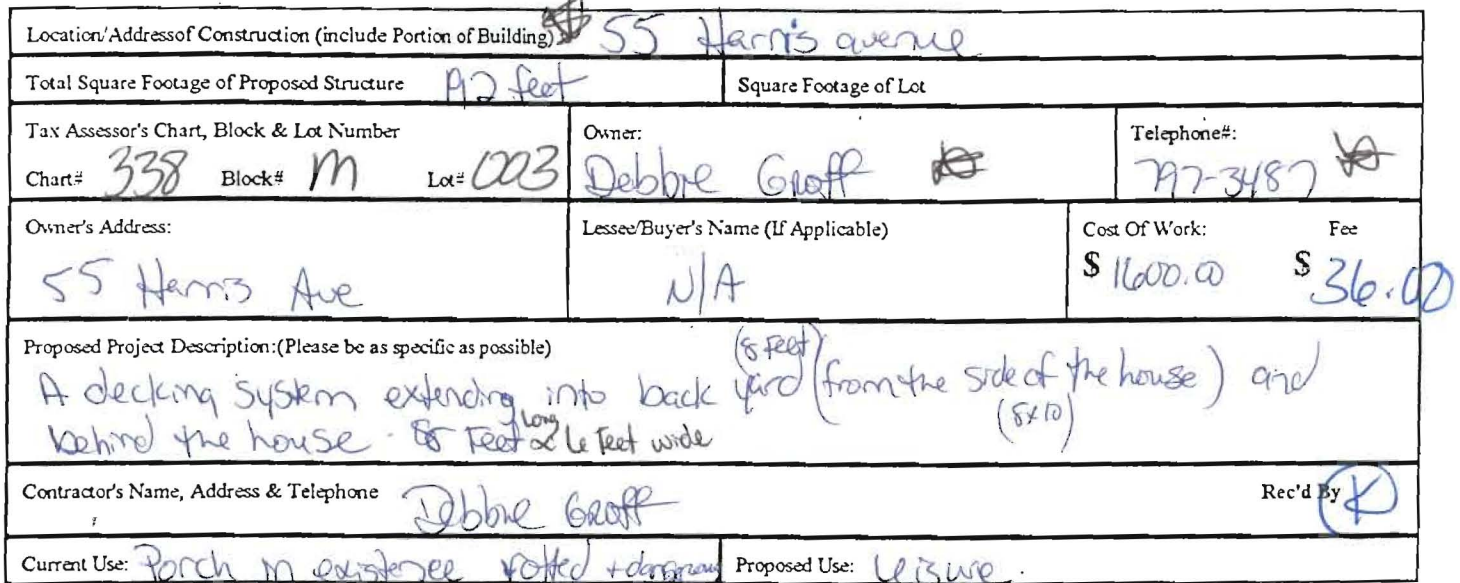 Location/Addressof Construction (include Portion of Building) 55 Harris avenue
Total Square Footage of Proposed Structure 192 feet Square Footage of Lot
Tax Assessor's Chart, Block & Lot Number Owner: Telephone#:
Chart# 338 Block# M Lot# 003 Debbie Groff 797-3487
Owner's Address: Lessee/Buyer's Name (If Applicable) Cost Of Work: Fee
55 Harris Ave N/A $ 1600.00 $ 36.00
Proposed Project Description:(Please be as specific as possible) (8 feet)
A decking system extending into back yard (from the side of the house) and
behind the house. 8 Feet Long 6 Feet wide (8x10)
Contractor's Name, Address & Telephone Debbie Groff Rec'd By K
Current Use: Porch in existence rotted + dangerous Proposed Use: Leisure.